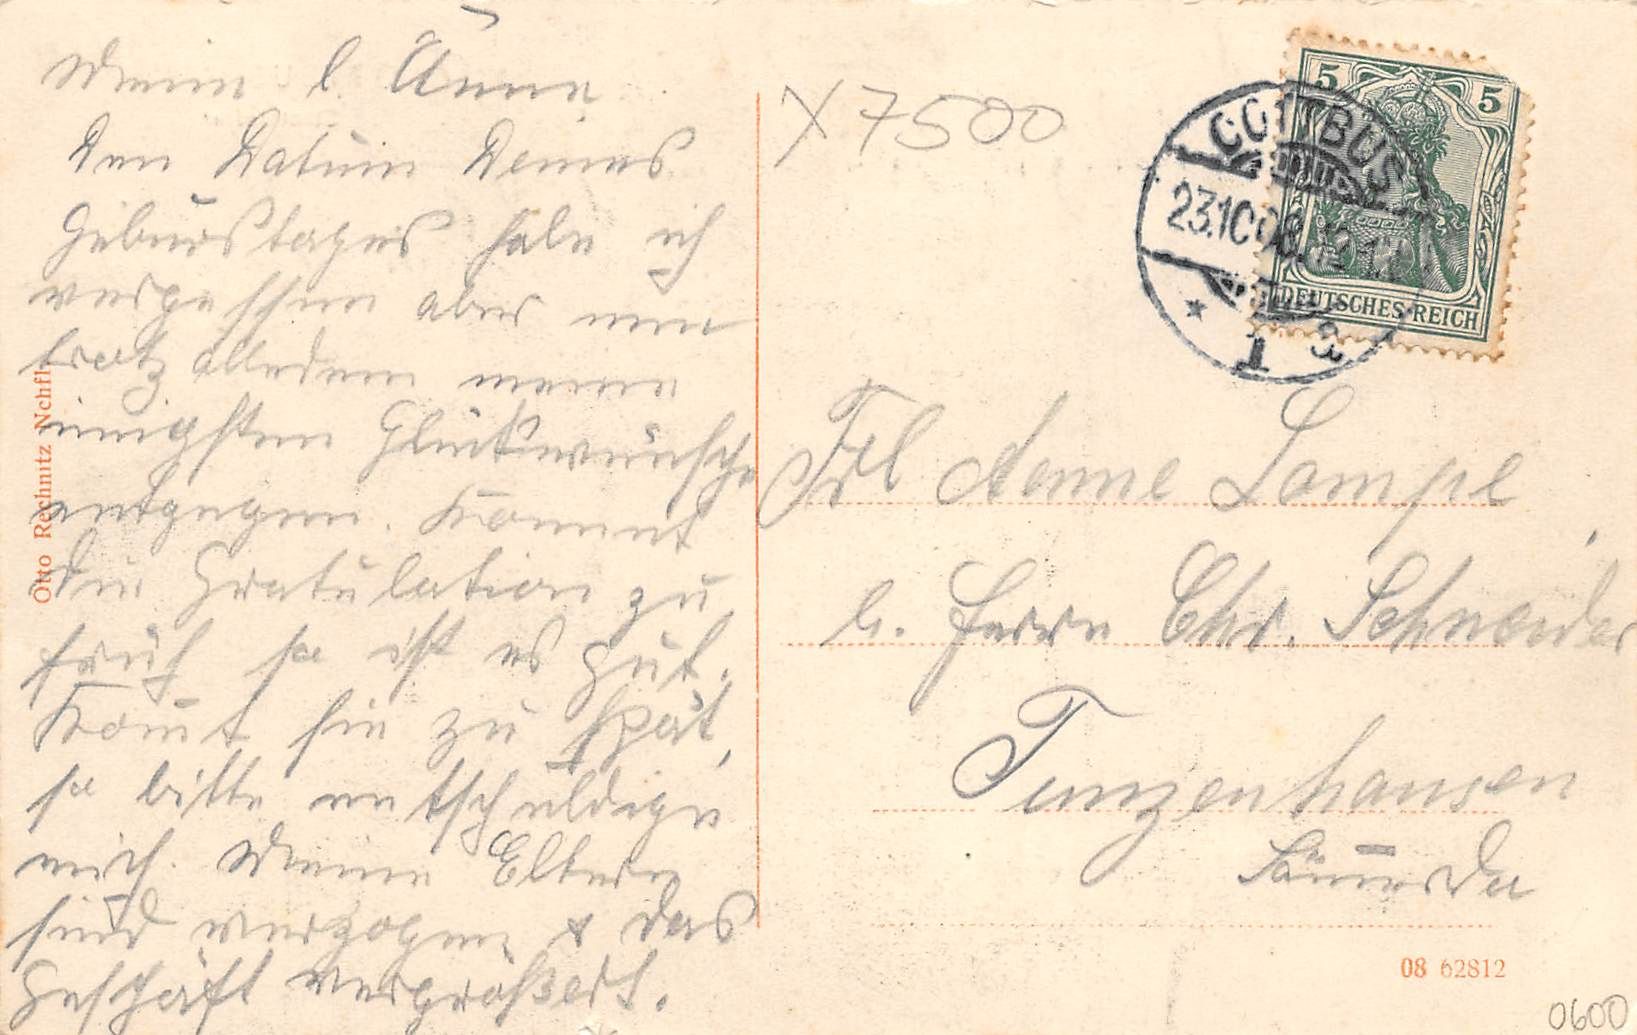 Meine l. Änne
Den Datum Deines
Geburstages habe ich
vergessen aber nun
trotz alledem meine
innigsten Glückwünsche
entgegen. Kommt
die Gratulation zu
früh so ist es gut.
Kom̄t sie zu spät,
so bitte entschuldige
mich. Meine Eltern
sind verzogen & das
Geschäft vergrößert.
Otto Rechnitz Nchfl.
X 7500
5 5
COTTBUS
23.10.08.12-1N
* 1
DEUTSCHES REICH
Frl Aenne Lampe,
b. Herrn Chr. Schneider
Tunzenhausen
Söm̄erda
08 62812
0600